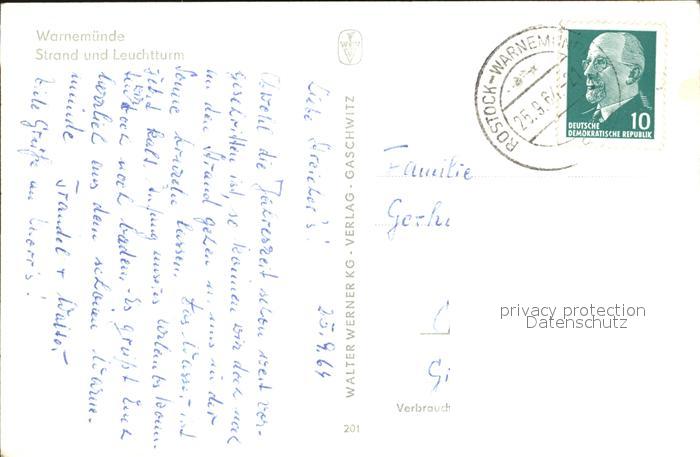 Warnemünde
Strand und Leuchtturm
Liebe Streicher's! 25.9.64
Obwohl die Jahreszeit schon weit vor-
geschritten ist, so können wir doch noch
an den Strand gehen u. uns in der
Sonne braten lassen. Das Wasser ist
jetzt kalt. Anfang unseres Urlaubs konn-
ten wir noch baden. Es grüßt Euch
herzlich aus dem schönen Warne-
münde Traudel + Walter
Viele Grüße an
WALTER WERNER KG · VERLAG · GASCHWITZ
201
ROSTOCK-WARNEMÜNDE
25.9.64
DEUTSCHE
DEMOKRATISCHE REPUBLIK
10
Familie
Gerh
privacy protection
Datenschutz
Gi
Verbrauch